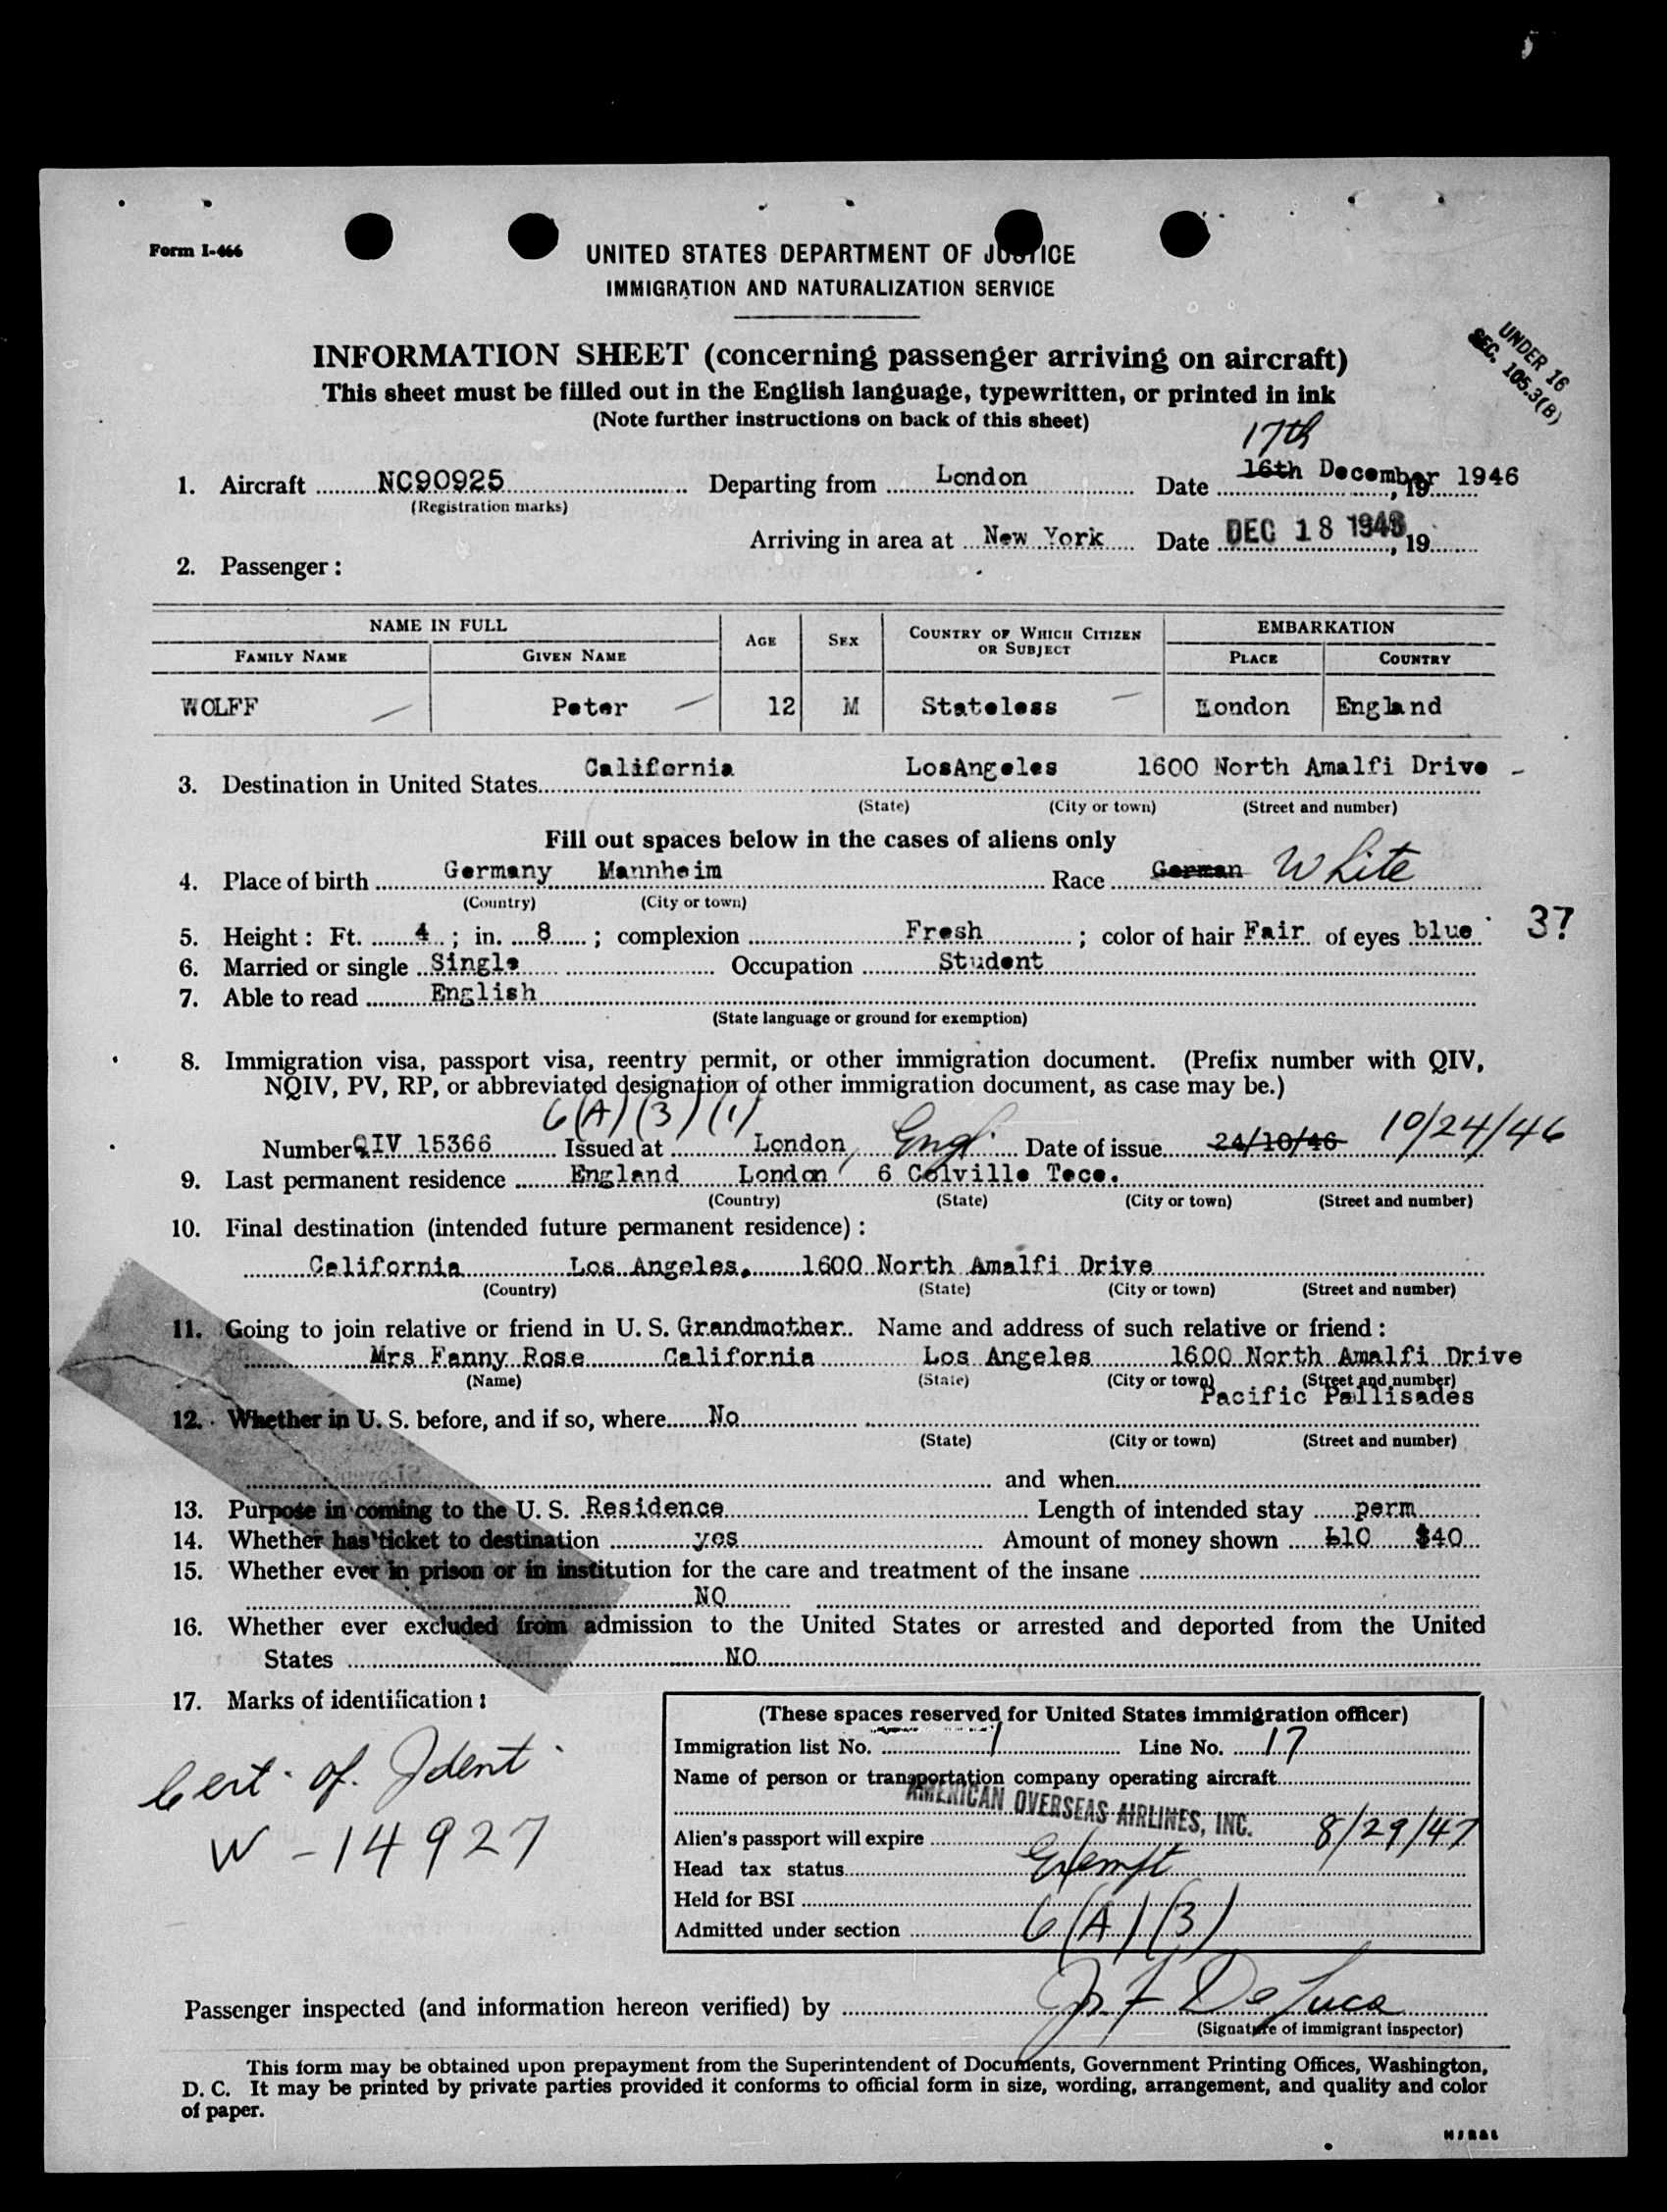 Form I-466
UNITED STATES DEPARTMENT OF JUSTICE
IMMIGRATION AND NATURALIZATION SERVICE
INFORMATION SHEET (concerning passenger arriving on aircraft)
UNDER 16
SEC. 105.3(B)
This sheet must be filled out in the English language, typewritten, or printed in ink
(Note further instructions on back of this sheet)
17th
1. Aircraft NC90925 Departing from London Date 16th December 1946, 19
(Registration marks)
Arriving in area at New York Date DEC 18 1946, 19
2. Passenger:
NAME IN FULL AGE SEX COUNTRY OF WHICH CITIZEN OR SUBJECT EMBARKATION
FAMILY NAME GIVEN NAME PLACE COUNTRY
WOLFF Peter 12 M Stateless London England
3. Destination in United States California LosAngeles 1600 North Amalfi Drive
(State) (City or town) (Street and number)
Fill out spaces below in the cases of aliens only
4. Place of birth Germany Mannheim Race German White
(Country) (City or town)
5. Height: Ft. 4; in. 8; complexion Fresh; color of hair Fair of eyes blue 37
6. Married or single Single Occupation Student
7. Able to read English
(State language or ground for exemption)
8. Immigration visa, passport visa, reentry permit, or other immigration document. (Prefix number with QIV,
NQIV, PV, RP, or abbreviated designation of other immigration document, as case may be.)
6(A)(3)(1)
Number QIV 15366 Issued at London, Engl. Date of issue 24/10/46 10/24/46
9. Last permanent residence England London 6 Colville Tece.
(Country) (State) (City or town) (Street and number)
10. Final destination (intended future permanent residence):
California Los Angeles, 1600 North Amalfi Drive
(Country) (State) (City or town) (Street and number)
11. Going to join relative or friend in U. S. Grandmother. Name and address of such relative or friend:
Mrs Fanny Rose California Los Angeles 1600 North Amalfi Drive
(Name) (State) (City or town) (Street and number)
Pacific Pallisades
12. Whether in U. S. before, and if so, where No
(State) (City or town) (Street and number)
and when
13. Purpose in coming to the U. S. Residence Length of intended stay perm
14. Whether has ticket to destination yes Amount of money shown £10 $40
15. Whether ever in prison or in institution for the care and treatment of the insane
NO
16. Whether ever excluded from admission to the United States or arrested and deported from the United
States NO
17. Marks of identification:
Cert. of. Ident.
W - 14927
(These spaces reserved for United States immigration officer)
Immigration list No. 1 Line No. 17
Name of person or transportation company operating aircraft
AMERICAN OVERSEAS AIRLINES, INC.
Alien's passport will expire 8/29/47
Head tax status Exempt
Held for BSI
Admitted under section 6(A)(3)
Passenger inspected (and information hereon verified) by J. F. DeLuca
(Signature of immigrant inspector)
This form may be obtained upon prepayment from the Superintendent of Documents, Government Printing Offices, Washington,
D. C. It may be printed by private parties provided it conforms to official form in size, wording, arrangement, and quality and color
of paper.